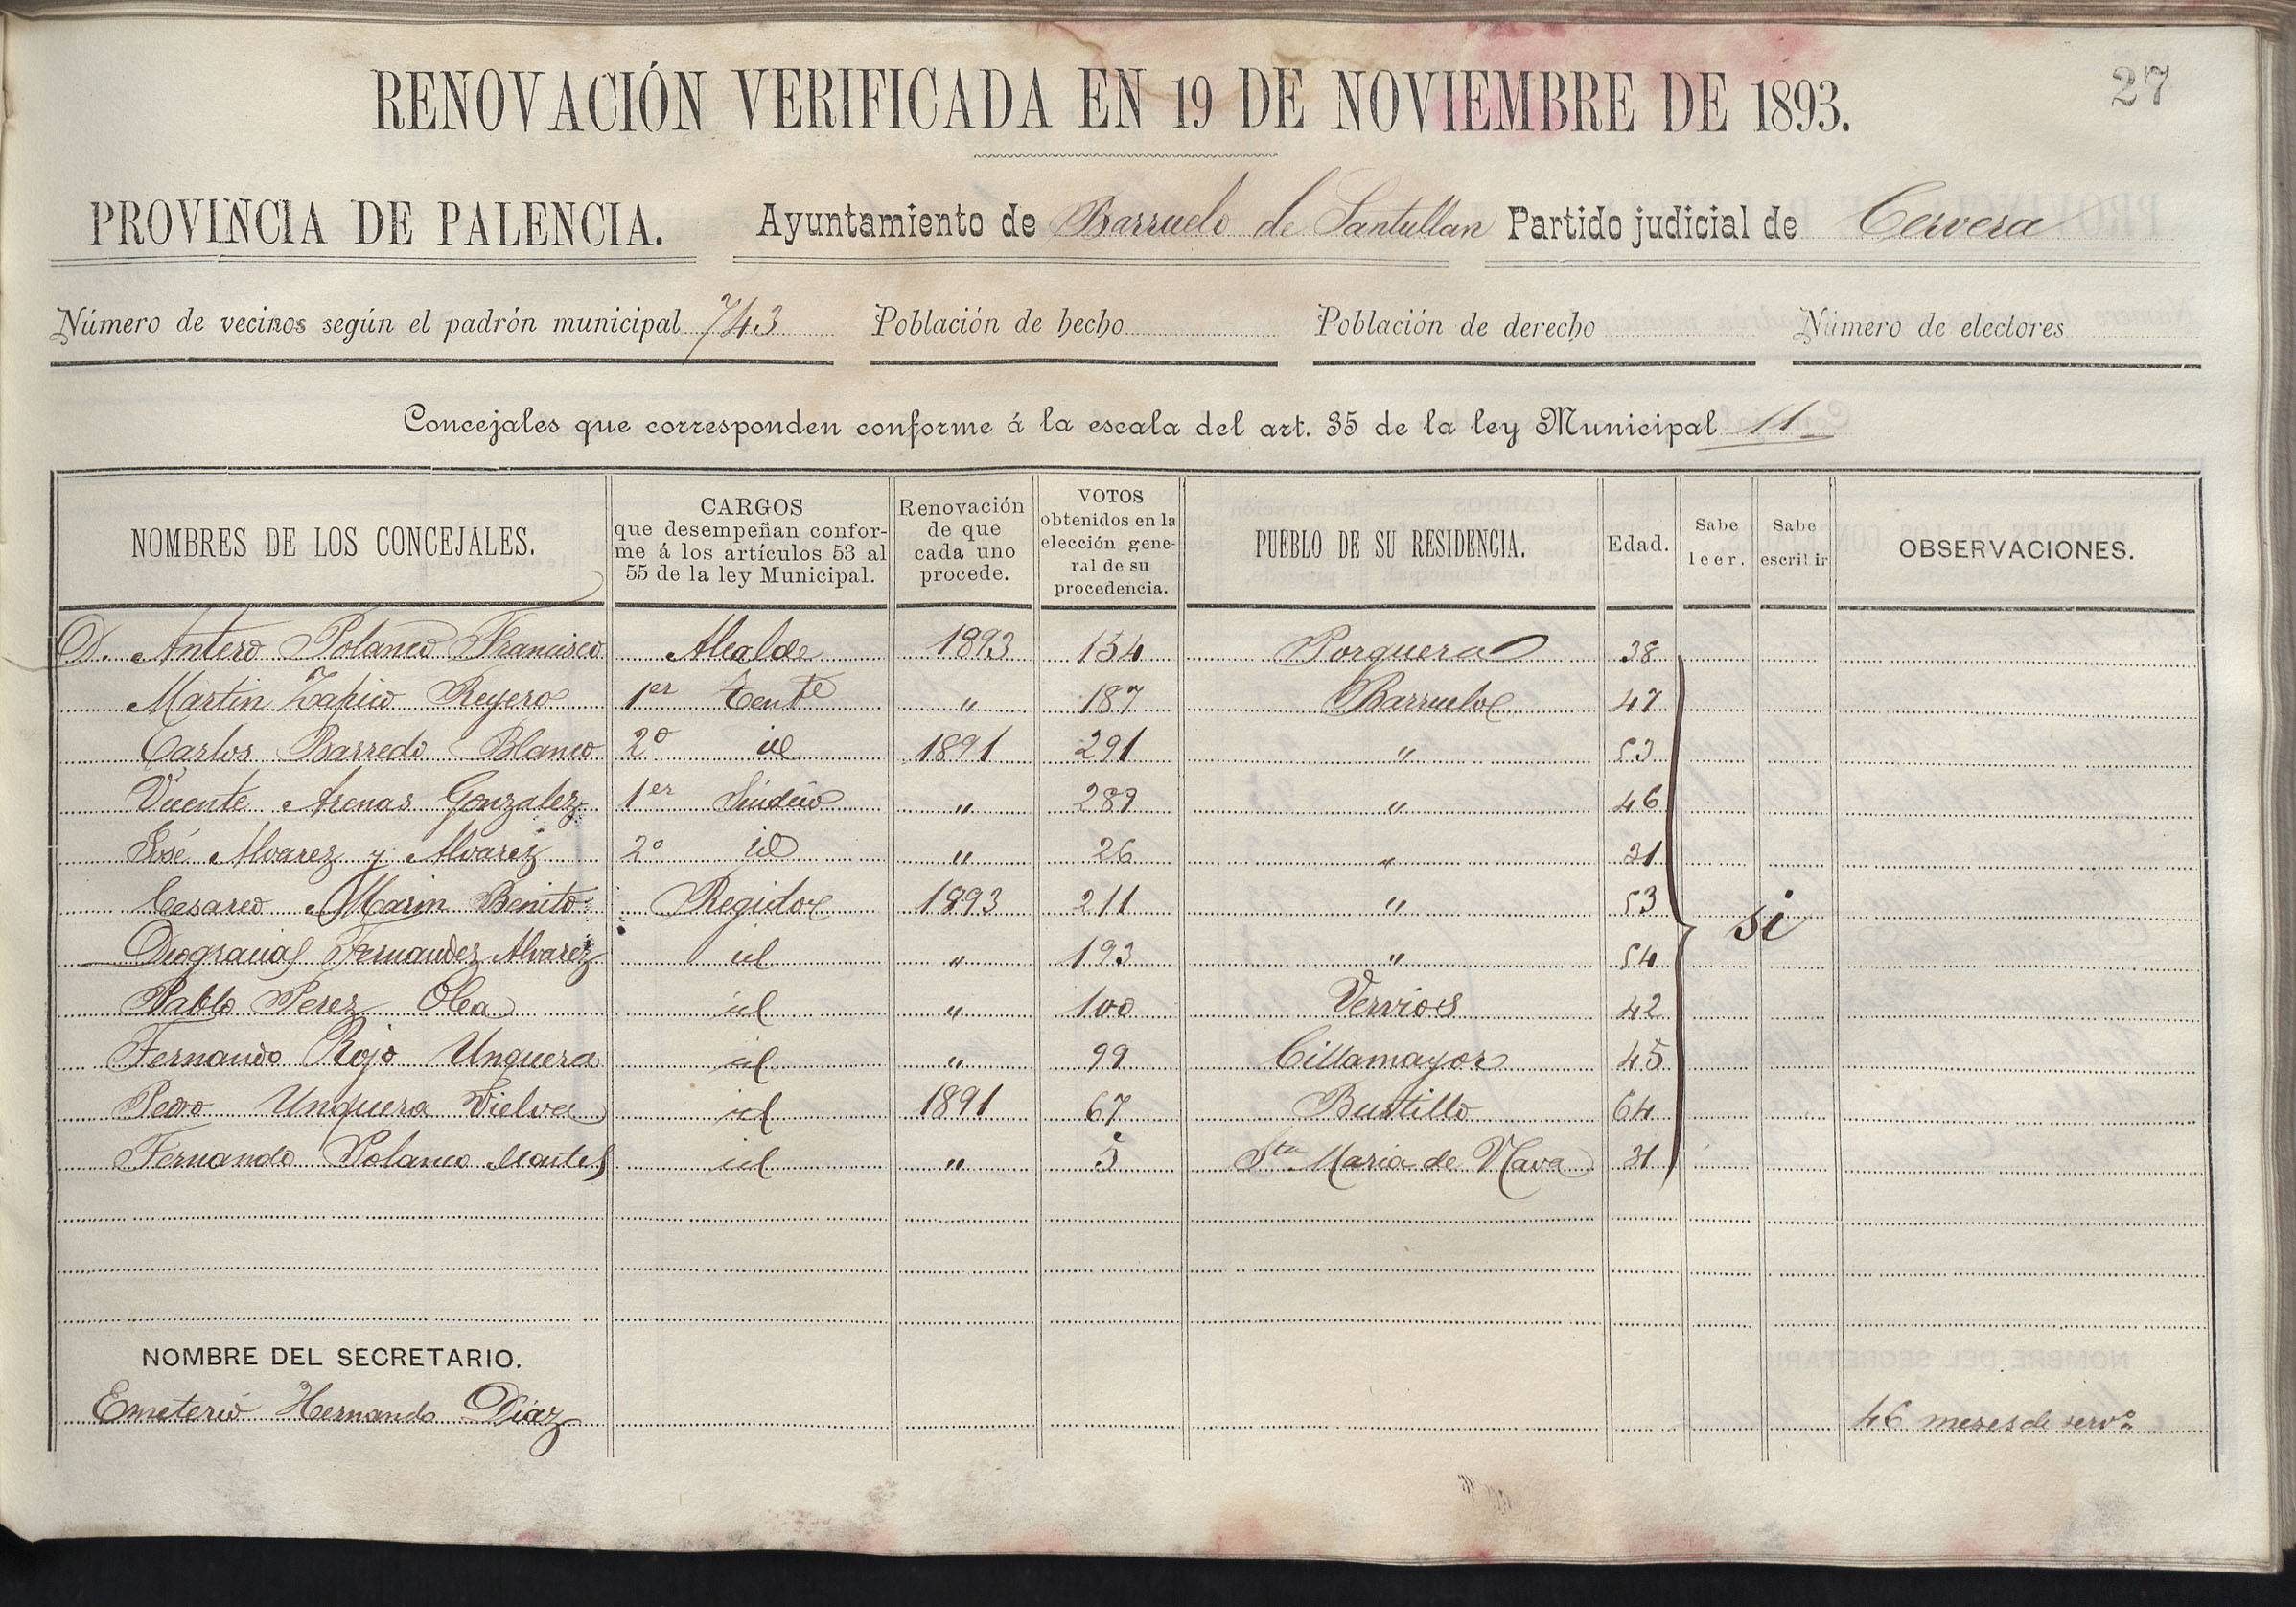 27
RENOVACIÓN VERIFICADA EN 19 DE NOVIEMBRE DE 1893.
PROVINCIA DE PALENCIA. Ayuntamiento de Barruelo de Santullan Partido judicial de Cervera
Número de vecinos según el padrón municipal 743 Población de hecho Población de derecho Número de electores
Concejales que corresponden conforme á la escala del art. 35 de la ley Municipal 11
NOMBRES DE LOS CONCEJALES. CARGOS que desempeñan conforme á los artículos 53 al 55 de la ley Municipal. Renovación de que cada uno procede. VOTOS obtenidos en la elección general de su procedencia. PUEBLO DE SU RESIDENCIA. Edad. Sabe leer. Sabe escribir OBSERVACIONES.
D. Antero Polanco Francisco Alcalde 1893 154 Porquera 38
Martin Zapico Reyero 1er Tente " 187 Barruelo 47
Carlos Barredo Blanco 2º id 1891 291 " 53
Vicente Arenas Gonzalez 1er Sindico " 289 " 46
José Alvarez y Alvarez 2º id " 26 " 31
Cesareo Marin Benito Regidor 1893 211 " 53 si
Deogracias Fernandez Alvarez id " 193 " 54
Pablo Perez Olea id " 100 Vervios 42
Fernando Rojo Unquera id " 99 Cillamayor 45
Pedro Unquera Vielva id 1891 67 Bustillo 64
Fernando Polanco Montes id " 5 Sta Maria de Nava 31
NOMBRE DEL SECRETARIO.
Emeterio Hernando Díaz 46 meses de servº